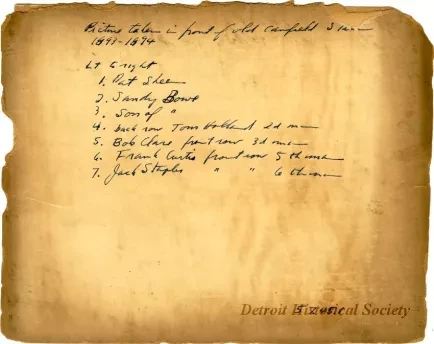 Picture taken in front of old Canfield
1893-1894
Lt to right
1. Pat Shea
2. Sandy Bowe
3. Son of "
4. back row Tom Holland 2d man
5. Bob Clare front row 3d man
6. Frank Curtis front row 5th man
7. Jack Staples " " 6th man
Detroit Historical Society